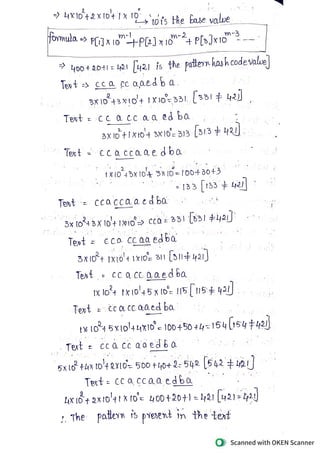 ⇒ 4x10²+2x10¹+1x10⁰ ↳ 10 is the base value
formula ⇒ P[1]x10^m-1 + P[2]x10^m-2 + P[3]x10^m-3
⇒ 400+20+1=421 [421 is the pattern hash code value]
Text ⇒ c c a c c a a e d b a
3x10²+3x10¹+1x10⁰=331 [331 ≠ 421]
Text = c c a c c a a e d b a
3x10²+1x10¹+3x10⁰=313 [313 ≠ 421]
Text = c c a c c a a e d b a
1x10²+3x10¹+3x10⁰=100+30+3
=133 [133 ≠ 421]
Text = c c a c c a a e d b a
3x10²+3x10¹+1x10⁰ ⇒ cca = 331 [331 ≠ 421]
Text = c c a c c a a e d b a
3x10²+1x10¹+1x10⁰= 311 [311 ≠ 421]
Text = c c a c c a a e d b a
1x10²+1x10¹+5x10⁰= 115 [115 ≠ 421]
Text = c c a c c a a e d b a
1x10²+5x10¹+4x10⁰=100+50+4=154 [154 ≠ 421]
Text = c c a c c a a e d b a
5x10²+4x10¹+2x10⁰= 500+40+2=542 [542 ≠ 421]
Text = c c a c c a a e d b a
4x10²+2x10¹+1x10⁰= 400+20+1=421 [421=421]
∴ The pattern is present in the text
Scanned with OKEN Scanner